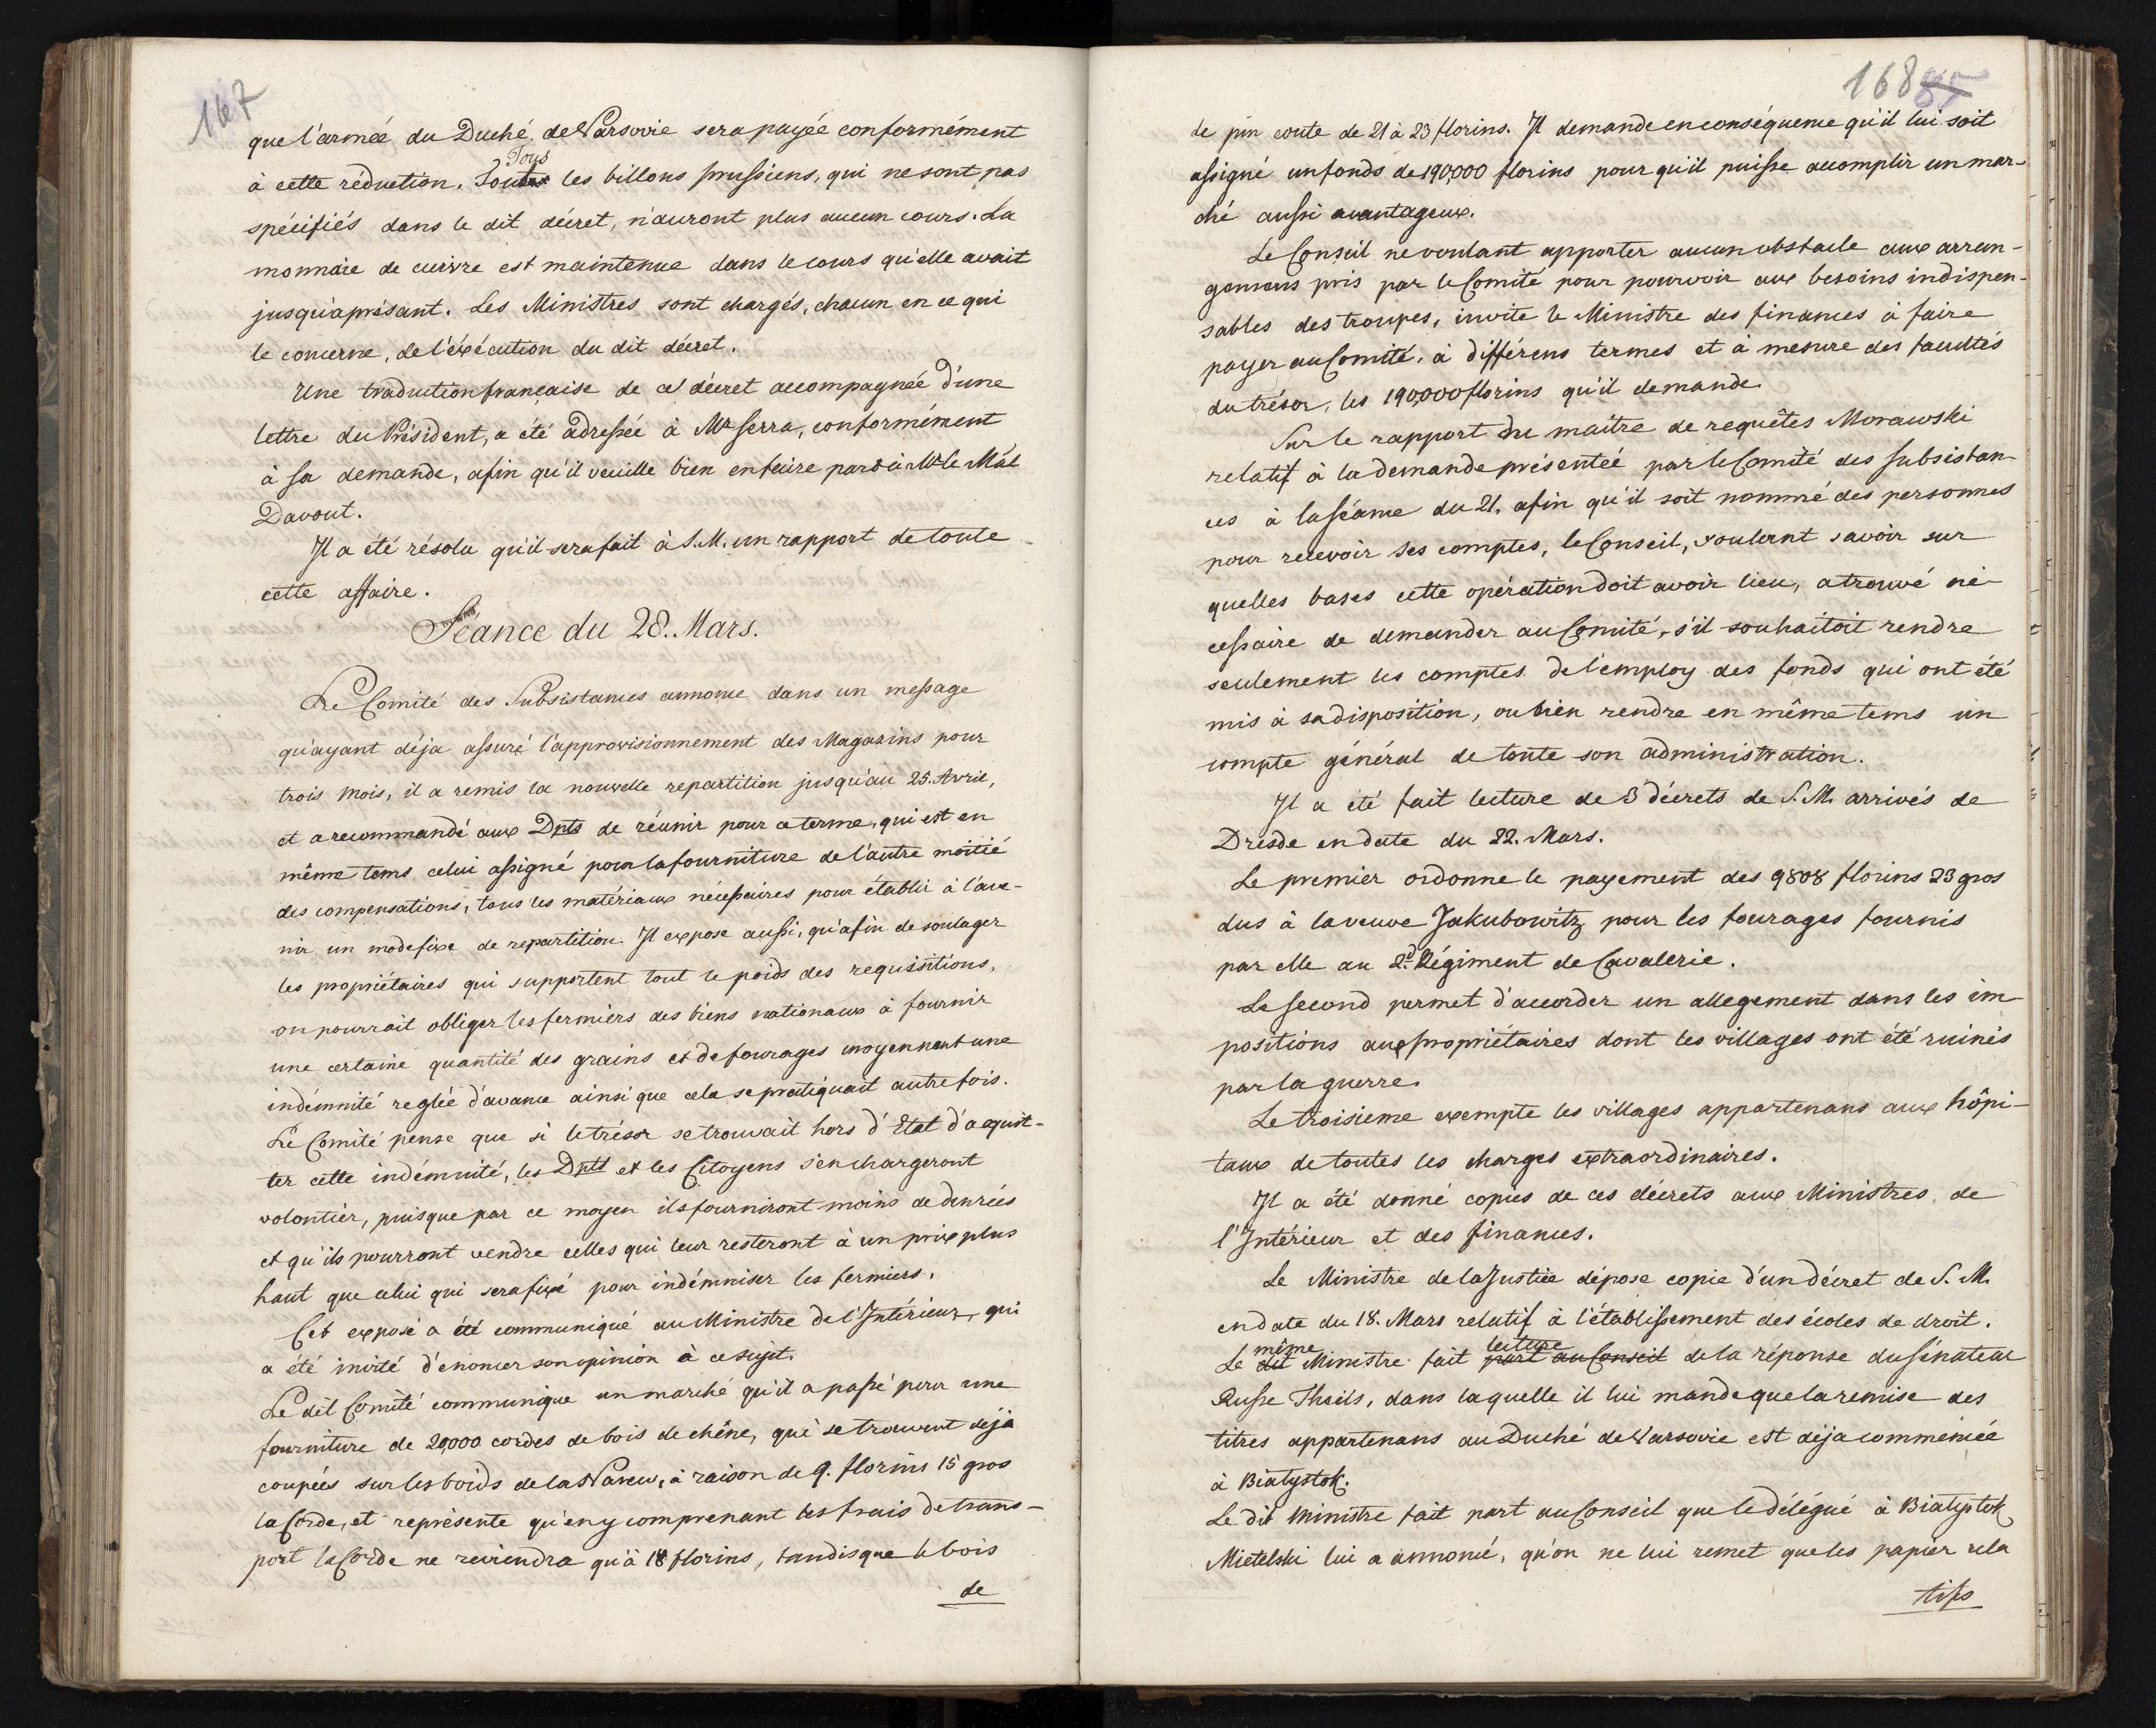 167
que l'armée du Duché de Varsovie sera payée conformément
à cette réduction. Tous les billons prussiens, qui ne sont pas
spécifiés dans le dit décret, n'auront plus aucun cours. La
monnaie de cuivre est maintenue dans le cours qu'elle avait
jusqu'àprésant. Les Ministres sont chargés, chacun en ce qui
le concerne, de l'éxécution du dit décret.
Une traduction française de ce décret accompagnée d'une
lettre du Président, a été adressée à Mr Serra, conformément
à sa demande, afin qu'il veuille bien en faire part à Mr le Mál
Davout.
Il a été résolu qu'il sera fait à S. M. un rapport de toute
cette affaire.
Séance du 28. Mars.
Le Comité des Subsistances annonce dans un message
qu'ayant déja assuré l'approvisionnement des Magazins pour
trois mois, il a remis la nouvelle repartition jusqu'au 25. Avril,
et a recommandé aux Dpts de réunir pour ce terme, qui est en
même tems celui assigné pour la fourniture de l'autre moitié
des compensations, tous les matériaux nécessaires pour établir à l'ave-
nir un mode fixe de repartition. Il expose aussi, qu'afin de soulager
les propriétaires qui supportent tout le poids des requisitions,
on pourrait obliger les fermiers des biens nationaux à fournir
une certaine quantité des grains et de fourages moyennant une
indémnité reglée d'avance ainsi que cela se pratiquait autrefois.
Le Comité pense que si le trésor se trouvait hors d'Etat d'aquit-
ter cette indémnité, les Dpts et les Citoyens s'en chargeront
volontier, puisque par ce moyen ils fourniront moins de denrées
et qu'ils pourront vendre celles qui leur resteront à un prix plus
haut que celui qui sera fixé pour indémniser les fermiers.
Cet exposé a été communiqué au Ministre de l'Intérieur, qui
a été invité d'énoncer son opinion à ce sujet.
Le dit Comité communique un marché qu'il a passé pour une
fourniture de 20,000 cordes de bois de chêne, qui se trouvent déja
coupées sur les bords de la Narew, à raison de 9. florins 15 gros
la Corde, et représente qu'en y comprenant les frais de trans-
port la Corde ne reviendra qu'à 18 florins, tandis que le bois
de
168 85
de pin coute de 21 à 23 florins. Il demande en conséquence qu'il lui soit
assigné un fonds de 190,000 florins pour qu'il puisse accomplir un mar-
ché aussi avantageux.
Le Conseil ne voulant apporter aucun obstacle aux arran-
gemens pris par le Comité pour pourvoir aux besoins indispen-
sables des troupes, invite le Ministre des finances à faire
payer au Comité, à différens termes et à mesure des facultés
du trésor, les 190,000 florins qu'il demande.
Sur le rapport du maître de requêtes Morawski
relatif à la demande présentée par le Comité des subsistan-
ces à la séance du 21, afin qu'il soit nommé des personnes
pour recevoir ses comptes, le Conseil, voulant savoir sur
quelles bases cette opération doit avoir lieu, a trouvé né-
cessaire de demander au Comité, s'il souhaitoit rendre
seulement les comptes de l'employ des fonds qui ont été
mis à sa disposition, ou bien rendre en même tems un
compte général de toute son administration.
Il a été fait lecture de 3 décrets de S. M. arrivés de
Dresde en date du 22. Mars.
Le premier ordonne le payement des 9808 florins 23 gros
dus à la veuve Jakubowitz pour les fourages fournis
par elle au 2d. Régiment de Cavalerie.
Le second permet d'accorder un allegement dans les im-
positions aux propriétaires dont les villages ont été ruinés
par la guerre.
Le troisieme exempte les villages appartenans aux hôpi-
taux de toutes les charges extraordinaires.
Il a été donné copies de ces décrets aux Ministres de
l'Intérieur et des finances.
Le Ministre de la Justice dépose copie d'un décret de S. M.
en date du 18. Mars relatif à l'établissement des écoles de droit.
même lecture
Le dit Ministre fait part au Conseil de la réponse du Sénateur
Russe Theils, dans laquelle il lui mande que la remise des
titres appartenans au Duché de Varsovie est déja commencée
à Białystok.
Le dit Ministre fait part au Conseil que le délégué à Białystok
Mietelski lui a annoncé, qu'on ne lui remet que les papier rela
tifs